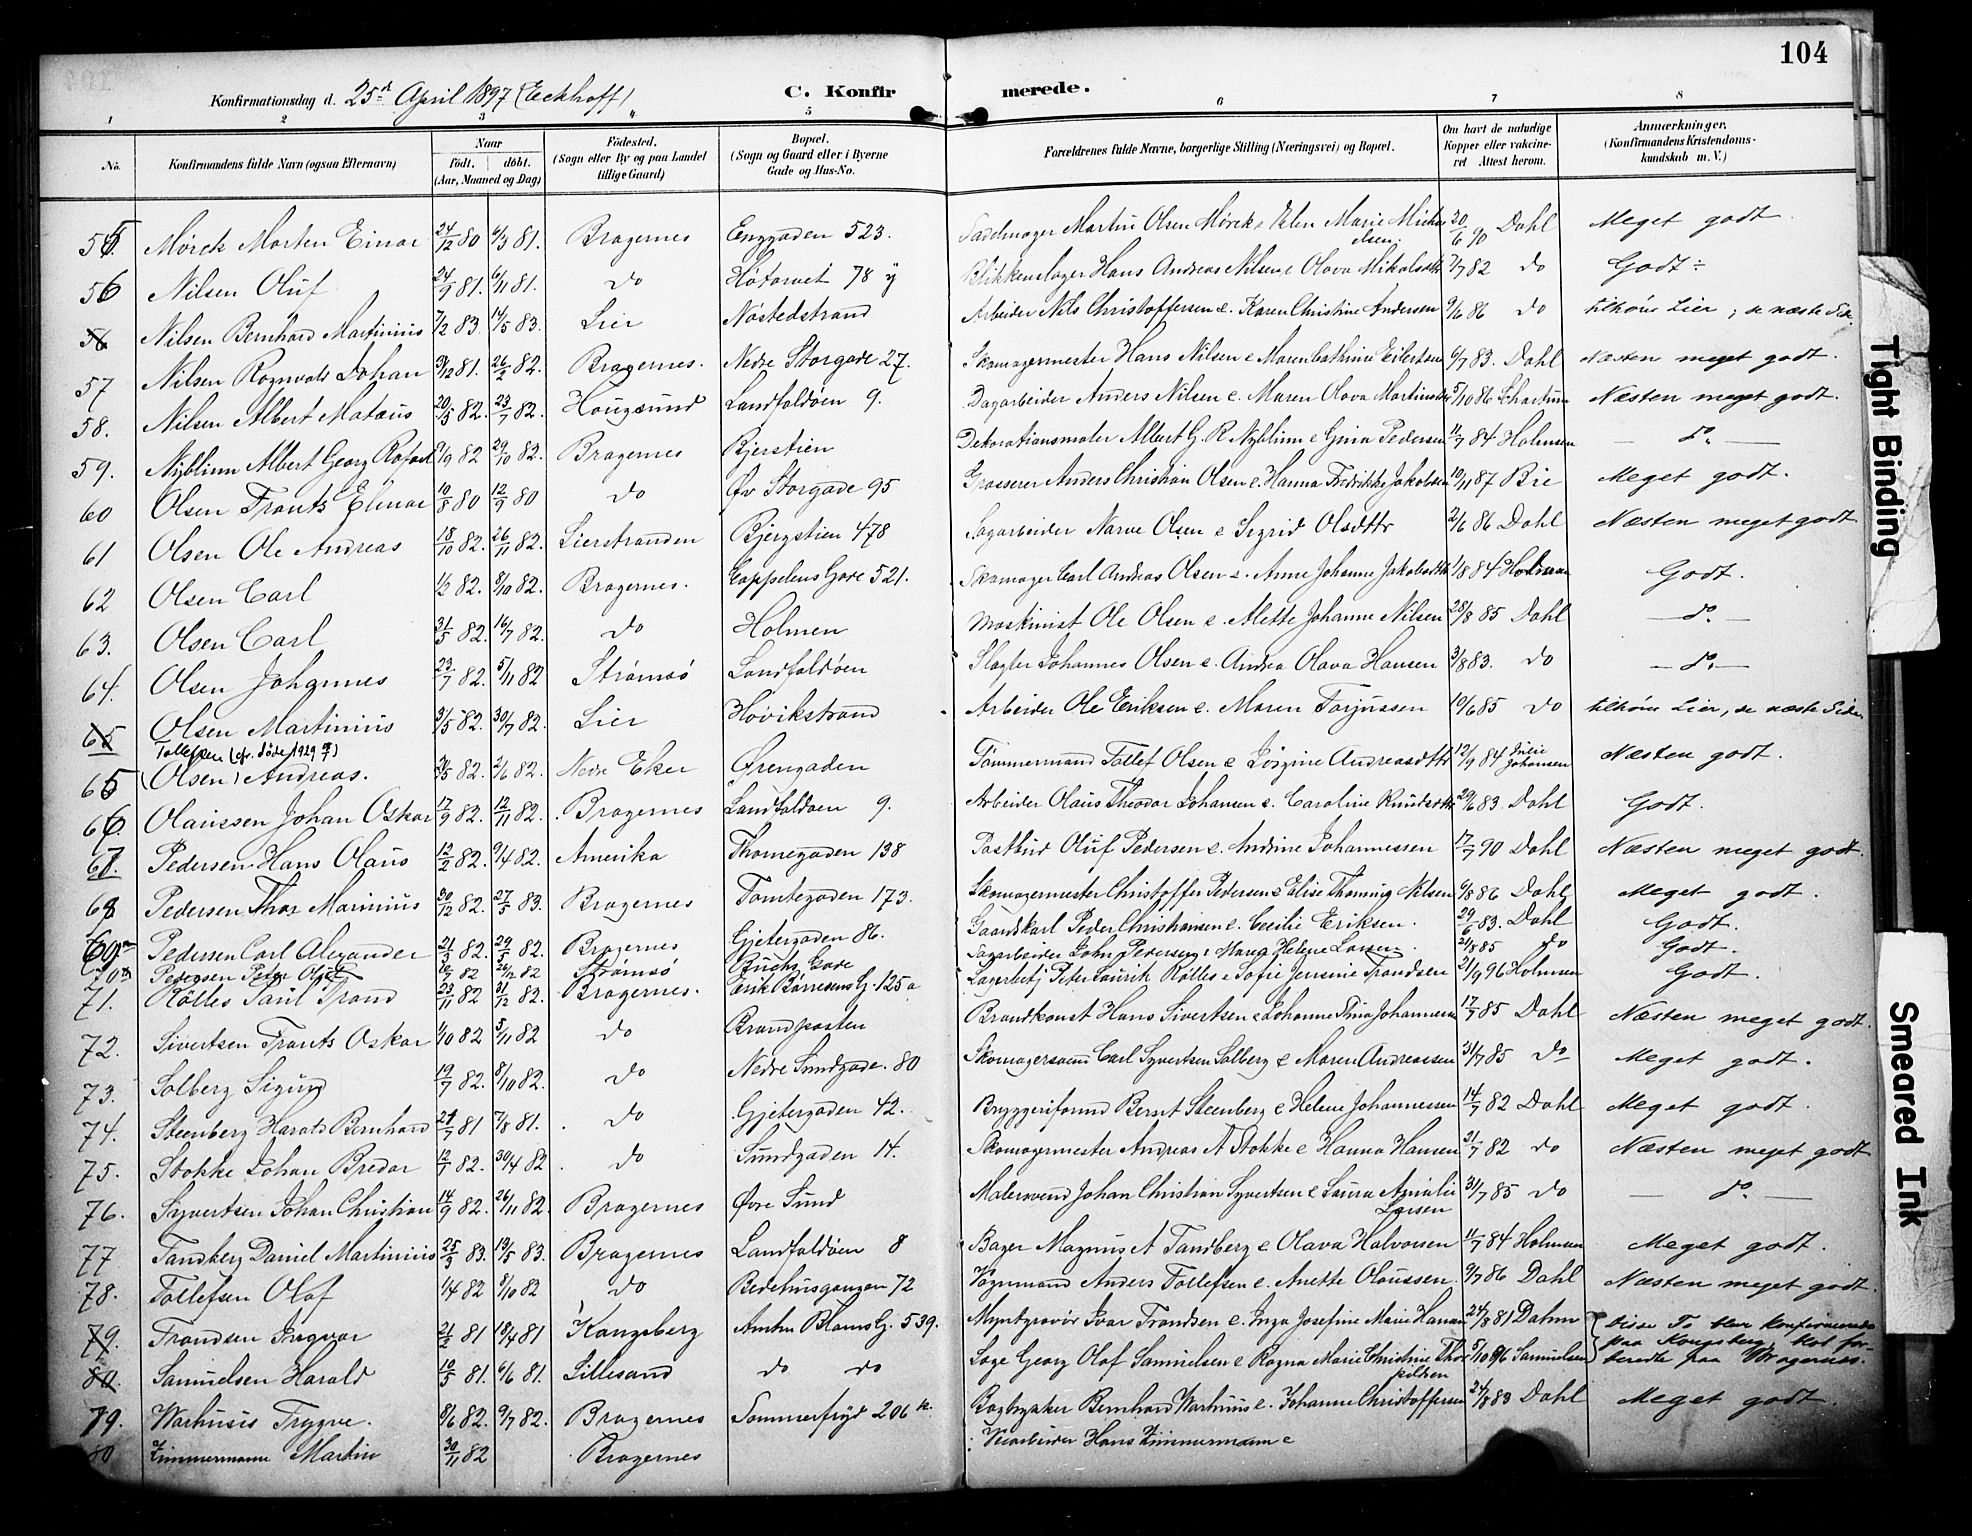 104
Konfirmationsdag d. 25de April 1897 (Eckhoff) C. Konfirmerede.
1 2 3 4 5 6 7 8
No. Konfirmandens fulde Navn (ogsaa Efternavn) Naar født. døbt. (Aar, Maaned og Dag) Fødested. (Sogn eller By og paa Landet tillige Gaard) Bopæl. (Sogn og Gaard eller i Byerne Gade og Hus-No. Forældrenes fulde Navne, borgerlige Stilling (Næringsvei) og Bopæl. Om havt de naturlige Kopper eller vakcineret Attest herom. Anmærkninger. (Konfirmandens Kristendomskundskab m. V.)
55 Mörch Morten Einar 24/12 80 6/3 81. Bragernes Enggaden 523. Sadelmager Martin Olsen Mörck e. Elen Marie Michaelsen. 20/6 90 Dahl Meget godt.
56 Nilsen Oluf 24/9 81. 6/11 81. do Høtorvet 78 y Blikkenslager Hans Andreas Nilsen e. Olava Mikolsdtr 7/7 82 do Godt ÷
56 Nilsen Bernhard Martinius 7/2 83. 14/5 83. Lier Nøstedstrand Arbeider Nils Christoffersen e. Karen Christine Andersen 9/6 86 do tilhøre Lier; se næste Side.
57 Nilsen Ragnvald Johan 31/12 81. 26/2 82. Bragernes. Nedre Storgade 27. Skomagermester Hans Nilsen e Maren Cathrine Eilertsen 6/7 83. Dahl Næsten meget godt.
58. Nilsen Albert Matæus 20/5 82. 23/7 82. Hougsund Landfaldøen 9. Dagarbeider Anders Nilsen e. Maren Olava Martinsdtr 5/10 86 Schartum Næsten meget godt.
59. Nyblinn Albert Georg Rafael 9/9 82 29/10 82. Bragernes Bjerstien Dekorationsmaler Albert G. R. Nyblinn e Gina Pedersen 11/7 84 Holmsen — do —
60 Olsen Frants Einar 10/8 80 12/9 80 do Øv Storgade 95 Grosserer Anders Christian Olsen e. Hanna Fredrikke Jakobsen 10/11 87 Bie Meget godt.
61 Olsen Ole Andreas 18/10 82. 26/11 82. Lierstranden Bjergstien 478 Sagarbeider Narve Olsen e Sigrid Olsdtr 2/6 86 Dahl Næsten meget godt
62 Olsen Carl 1/2 82. 8/10 82. Bragernes. Cappelens Gade 521. Skomager Carl Andreas Olsen e. Anne Johanne Jakobsdtr 1/8 84 Holmsen Godt.
63. Olsen Carl 31/5 82. 16/7 82. do Holmen Maskinist Ole Olsen e. Alette Johanne Nilsen 28/8 85 Dahl — do —
64. Olsen Johannes 23/7 82. 5/11 82 Strømsø Landfaldøen Slagter Johannes Olsen e. Andrea Olava Hansen 3/8 83. do — do —
65 Olsen Martinius 31/5 82. 30/7 82. Lier Høvikstrand Arbeider Ole Eriksen e. Maren Torjussen 19/6 85 do tilhøre Lier, se næste Side
Tollefsen (cfr. døde 1929)
65 (Olsen) Andreas. 82. 2/6 82. Nedre Eker Ørengaden Tømmermand Tollef Olsen e Jørgine Andreasdtr 12/9 84 Julie Johansen Næsten godt.
66. Olaussen Johan Oskar 17/9 82. 12/11 82. Bragernes Landfaldøen 9. Arbeider Olaus Theodor Johansen e. Caroline Knudsdtr 29/6 83. Dahl Godt.
67. Pedersen Hans Olaus 12/2 82. 9/4 82. Amerika Thornegaden 138 Postbud Oluf Pedersen e. Andrine Johannessen 17/7 90 Dahl Næsten meget godt.
68 Pedersen Thor Marinius 30/12 82. 27/5 83. Bragernes Tomtegaden 173. Skomagermester Christoffer Pedersen e Elise Thonnig Nilsen 6/8 86 Dahl Meget godt.
69 Pedersen Carl Alexander 21/3 82. 29/5 82. Bragernes Gjetergaden 86. Gaardskarl Peder Christiansen e. Cecilie Eriksen. 29/6 83. Dahl Godt.
70 Pedersen Peter Olaf 82 82 Strømsø Buchs Gade Sagarbeider John Pedersen e Maria Helene Larsen. 2/8 85 do Godt.
71. Rølles Paul Trond 23/11 82 31/12 82. Bragernes. Erik Børresens G. 125 a Lagerbetj Peter Laurik Rølles e Sofie Jensine Trondsen 21/9 96 Holmsen Godt.
72. Sivertsen Frants Oskar 1/10 82 5/11 82 do Brandposten Brandkonst Hans Sivertsen e Johanne Tina Johannesen 17/7 85 Dahl Næsten meget godt.
73. Solberg Sigurd 19/7 82. 8/10 82. do Nedre Sundgade. 80 Skomagersvend Carl Syvertsen Solberg e Maren Andreassen 31/7 85 do Meget godt.
74. Steenberg Harald Bernhard 24/7 81 7/8 81. do Gjetergaden 42. Bryggeriformd Bernt Steenberg e Helene Johannessen 14/7 82 Dahl Meget godt.
75. Stokke Johan Bredar 12/1 82. 30/4 82 do Sundgaden 14. Skomagermester Andreas A Stokke e Hanna Hansen 21/7 82 do Næsten meget godt
76. Syvertsen Johan Christian 14/9 82. 26/11 82. Bragernes Øvre Sund Malersvend Johan Christian Syvertsen e Laura Amalie Larsen 31/7 85 do — do —
77 Tandberg Daniel Martinius 25/3 83. 13/5 83. Bragernes Landfaldøen 8 Bager Magnus A Tandberg e Olava Halvorsen 11/7 84 Holmsen Meget godt.
78. Tollefsen Olaf 1/4 82 8/10 82 do Bedehusgangen 72 Vognmand Anders Tollefsen e. Anette Olaussen. 9/7 86 Dahl Næsten meget godt.
79. Trondsen Ingvar 21/2 81 18/4 81 Kongsberg Amtm Bloms G. 539. Myntgravør Ivar Trondsen e. Inga Josefine Marie Hansen 24/8 81 Dahm disse To blev konfirmerede
80. Samuelsen Harald 10/5 81. 6/6 81. Lillesand do do Løge Georg Olaf Samuelsen e Ragna Marie Christine Thorkildsen 5/10 86 Samuelsen paa Kongsberg, kol forberedte paa Bragernes.
79. Warhuus Trygve. 8/6 82. 9/7 82. Bragernes Sommerfryd 206 k. Bogtrykker Bernhard Warhuus e. Johanne Christoffersen 24/8 83 Dahl Meget godt.
80 Zimmermann Martin 30/11 82 Bragernes Veiarbeider Hans Zimmermann e
Tight Binding
Smeared Ink